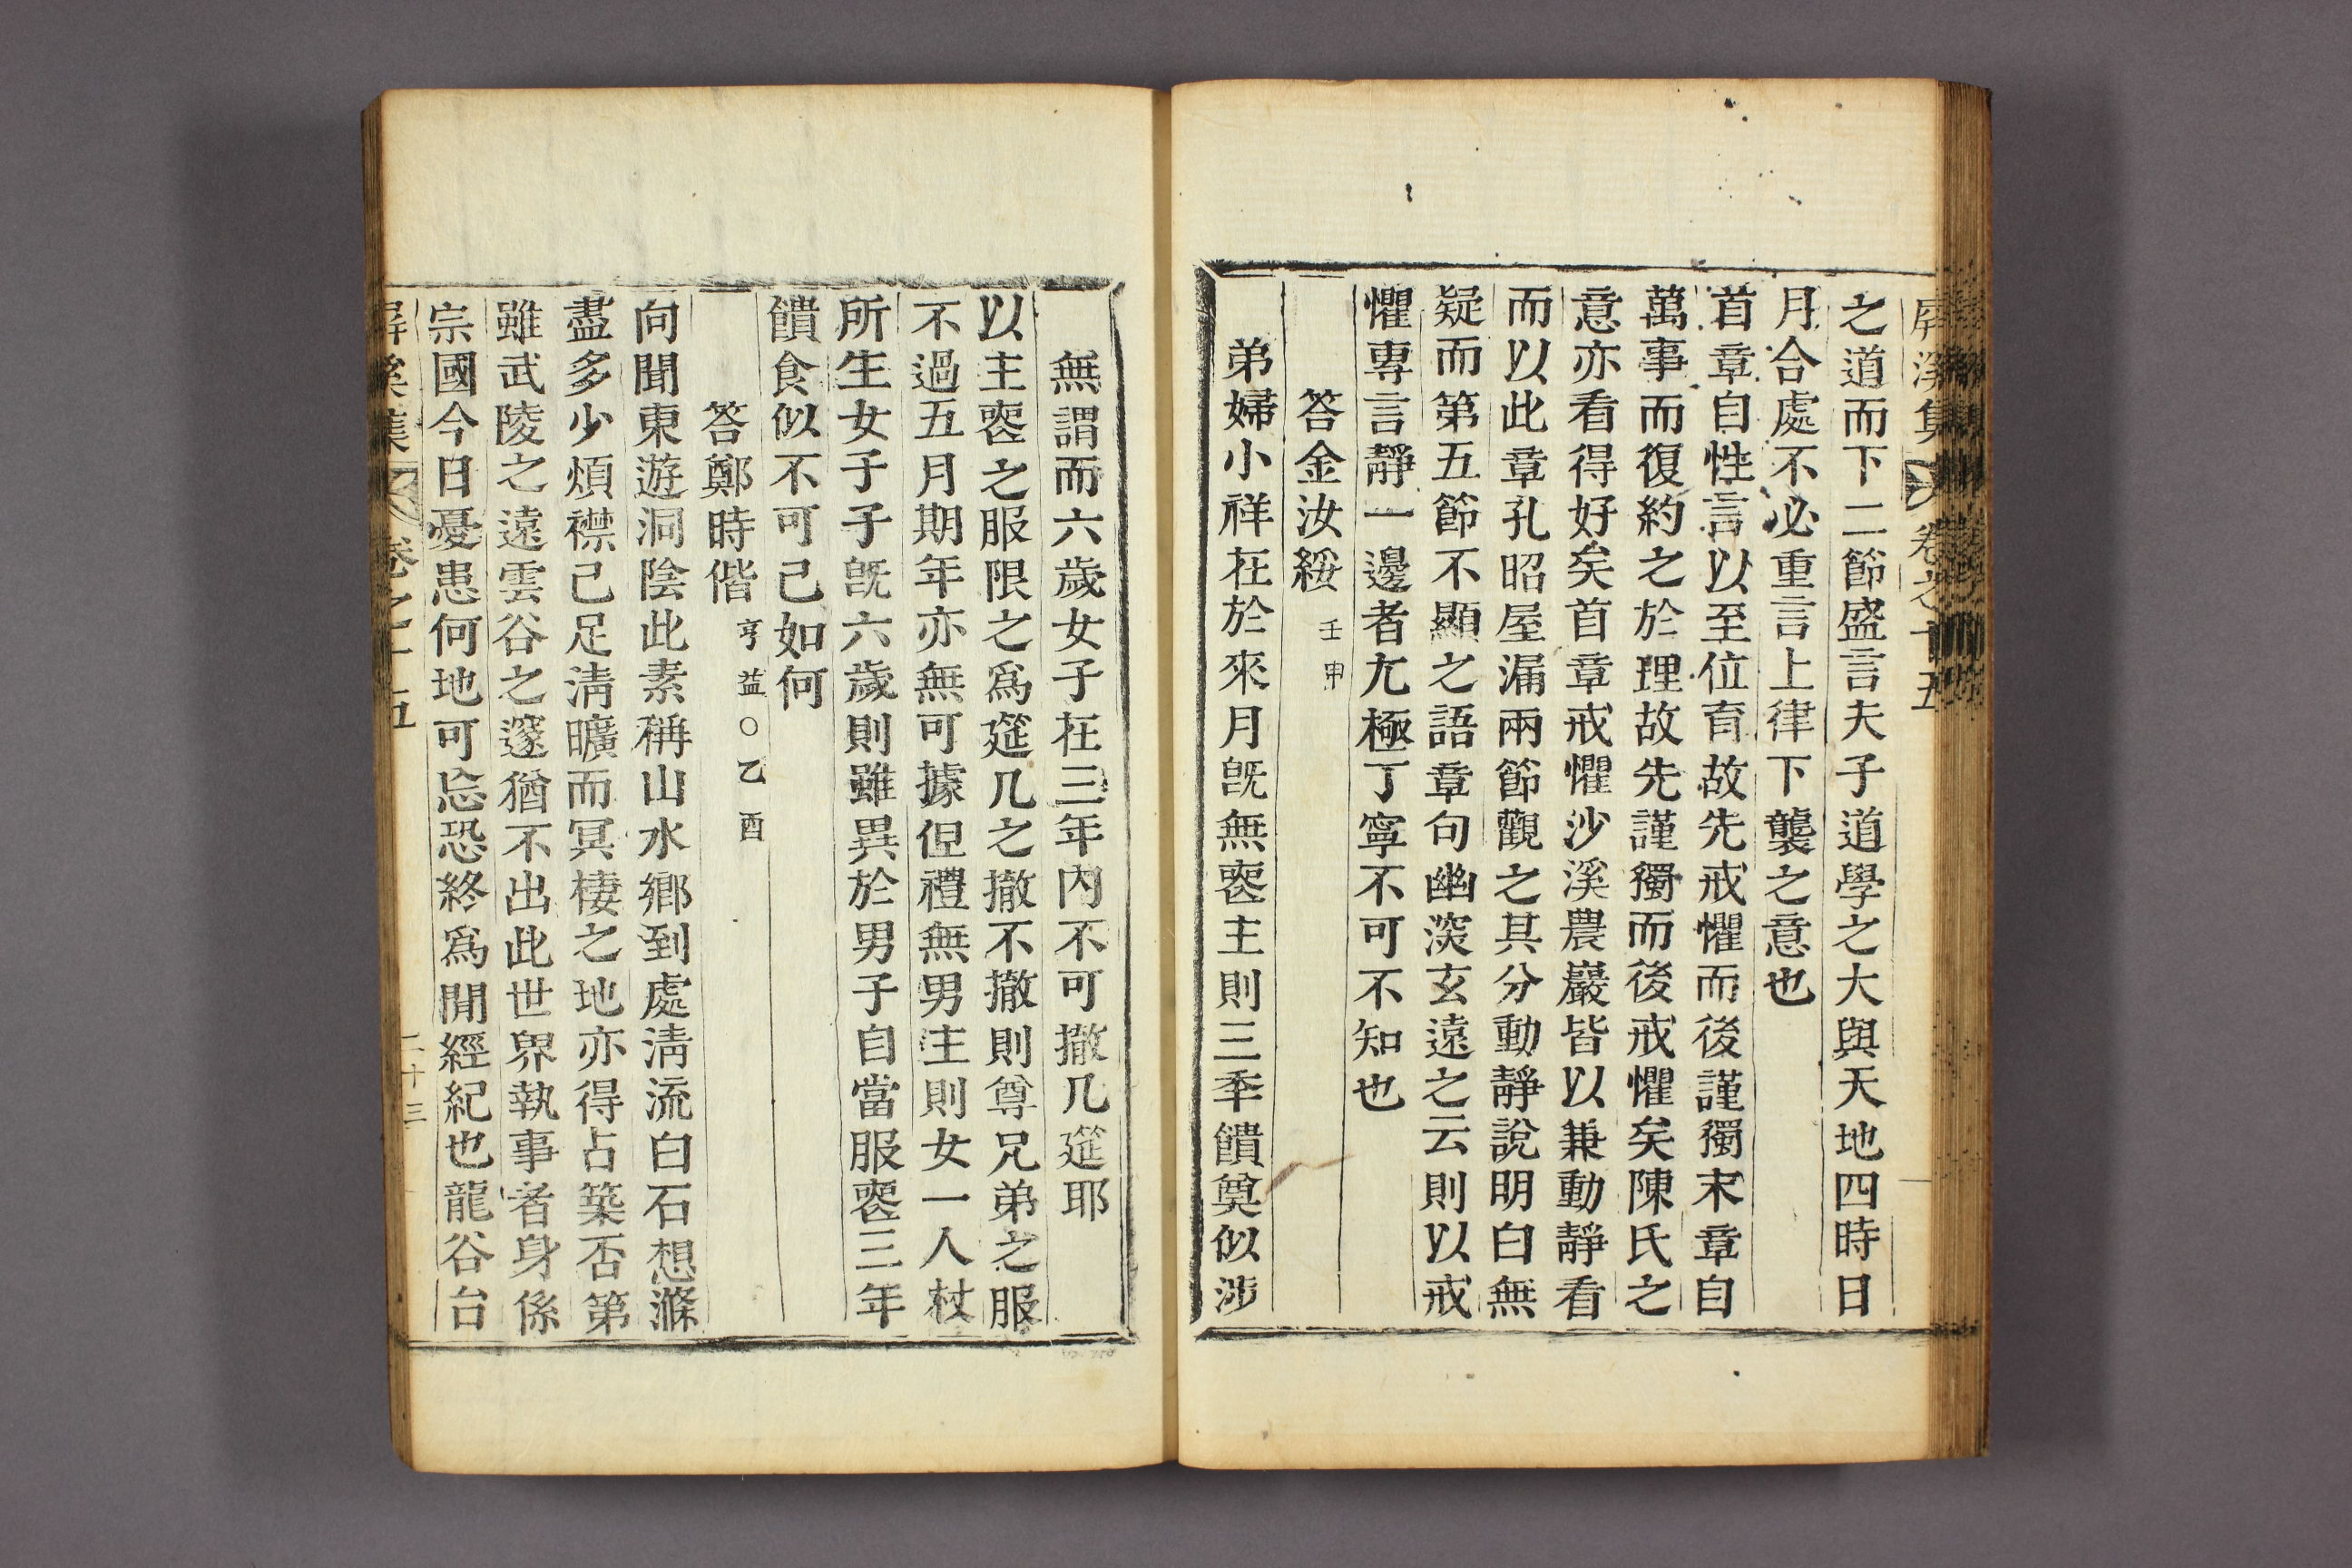 屛溪集 卷之十五
之道而下二節盛言夫子道學之大與天地四時日
月合處不必重言上律下襲之意也
首章自性言以至位育故先戒懼而後謹獨末章自
萬事而復約之於理故先謹獨而後戒懼矣陳氏之
意亦看得好矣首章戒懼沙溪農巖皆以兼動靜看
而以此章孔昭屋漏兩節觀之其分動靜說明白無
疑而第五節不顯之語章句幽深玄遠之云則以戒
懼專言靜一邊者尤極丁寧不可不知也
答金汝綏 壬申
弟婦小祥在於來月旣無喪主則三年饋奠似涉
無謂而六歲女子在三年內不可撤几筵耶
以主喪之服限之爲筵几之撤不撤則尊兄弟之服
不過五月期年亦無可據但禮無男主則女一人杖
所生女子子旣六歲則雖異於男子自當服喪三年
饋食似不可已如何
答鄭時偕 亨益○乙酉
向聞東遊洞陰此素稱山水鄕到處淸流白石想滌
盡多少煩襟已足淸曠而冥棲之地亦得占築否第
雖武陵之遠雲谷之邃猶不出此世界執事者身係
宗國今日憂患何地可忘恐終爲閒經紀也龍谷台
屛溪集 卷之十五 二十三